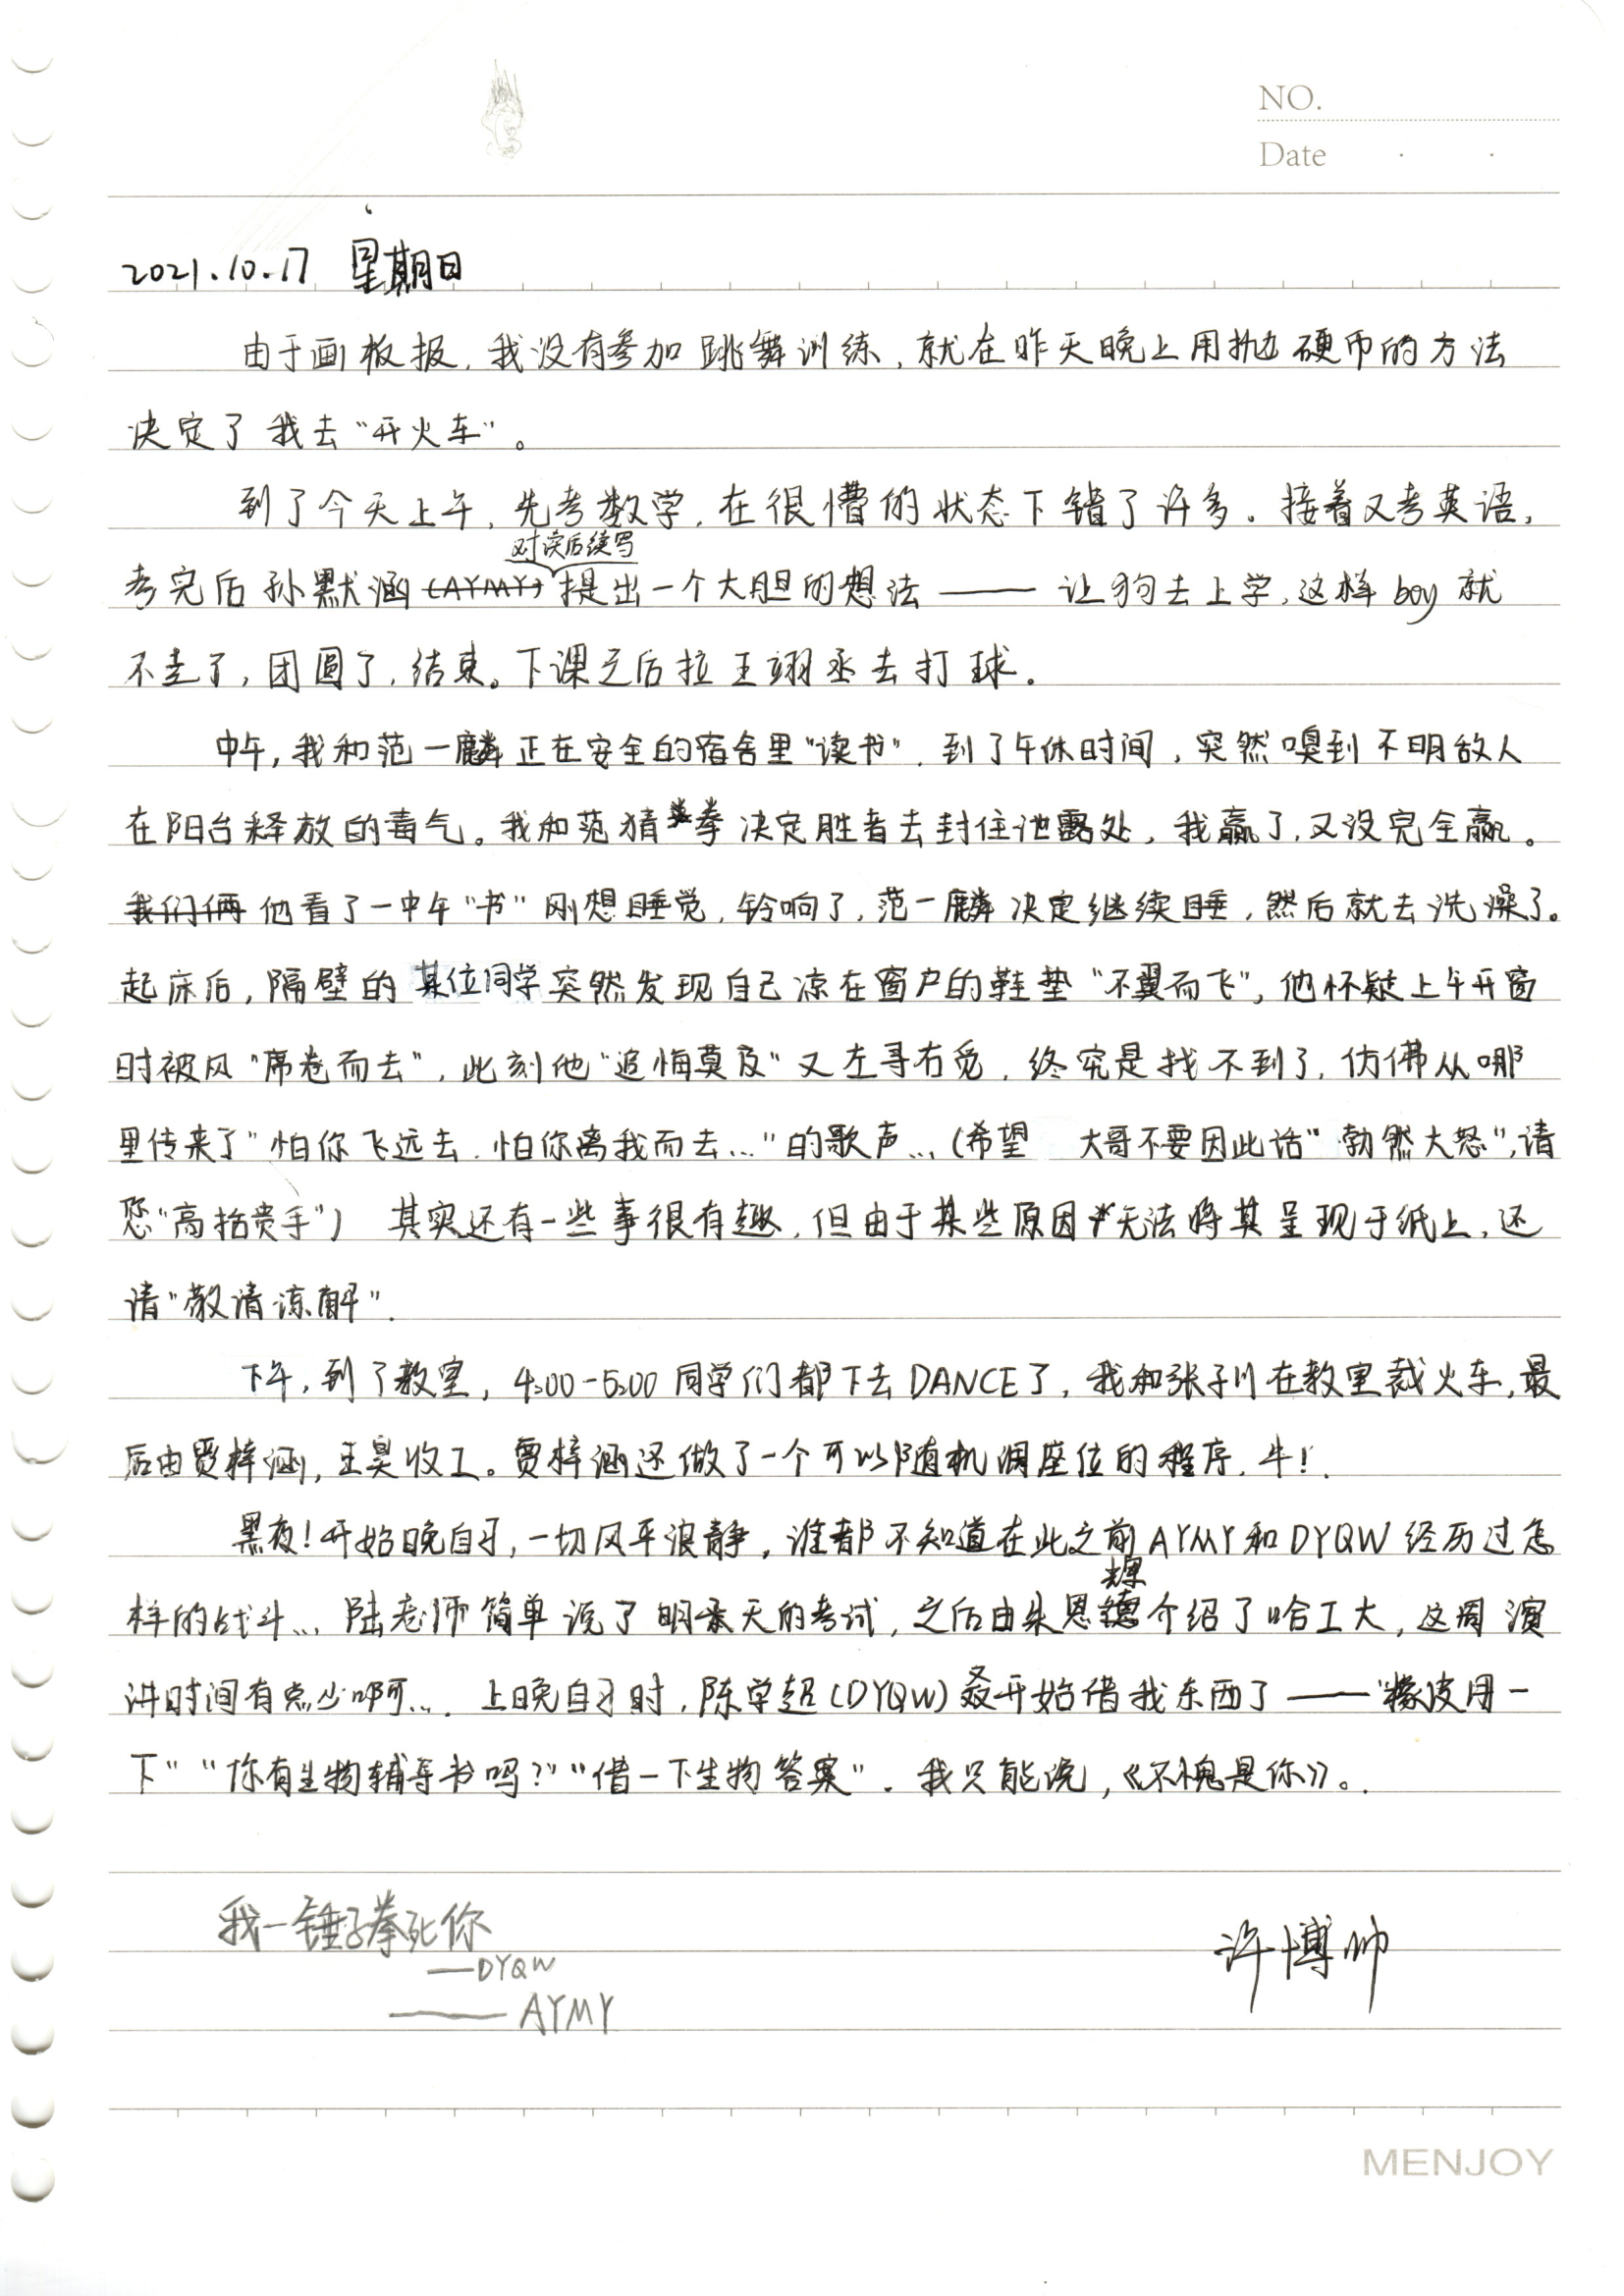 NO.
Date
2021.10.17 星期日
由于画板报,我没有参加跳舞训练,就在昨天晚上用抛硬币的方法
决定了我去"开火车"。
到了今天上午,先考数学,在很懵的状态下错了许多。接着又考英语,
对读后续写
考完后孙默涵(AYMY)提出一个大胆的想法——让狗去上学,这样boy就
不走了,团圆了,结束。下课之后拉王翊丞去打球.
中午,我和范一麟正在安全的宿舍里"读书",到了午休时间,突然嗅到不明敌人
在阳台释放的毒气。我和范猜拳决定胜者去封住泄露处,我赢了,又没完全赢。
我们俩他看了一中午"书"刚想睡觉,铃响了,范一麟决定继续睡,然后就去洗澡了。
起床后,隔壁的某位同学突然发现自己凉在窗户的鞋垫"不翼而飞",他怀疑上午开窗
时被风"席卷而去",此刻他"追悔莫及"又左寻右觅,终究是找不到了,仿佛从哪
里传来了"怕你飞远去,怕你离我而去…"的歌声…(希望 大哥不要因此话"勃然大怒",请
您"高抬贵手") 其实还有一些事很有趣,但由于某些原因无法将其呈现于纸上,还
请"敬请谅解".
下午,到了教室,4:00-5:00同学们都下去DANCE了,我和张子川在教室裁火车,最
后由贾梓涵,王昊收工。贾梓涵还做了一个可以随机调座位的程序,牛!.
黑夜!开始晚自习,一切风平浪静,谁都不知道在此之前AYMY和DYQW经历过怎
样的战斗… 陆老师简单说了明天的考试,之后由朱恩德介绍了哈工大,这周演
讲时间有点少啊…. 上晚自习时,陈学超(DYQW)又开始借我东西了——"橡皮用一
下""你有生物辅导书吗?""借一下生物答案".我只能说,《不愧是你》。.
我一锤子拳死你
—DYQW
许博帅
——AYMY
MENJOY